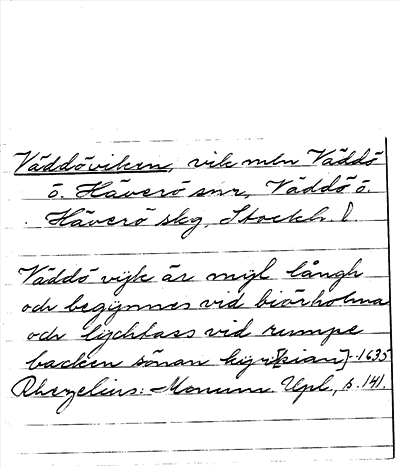 Väddöviken, vik mln Väddö
o. Häverö snr, Väddö o.
Häverö skg, Stockh. l
Väddö vijk är mijl långh
och begÿnnes vid biörholma
och lÿchtass vid rumpe
backen sönan kÿr[kian] 1635
Rhezelius: Monum Upl., s. 141.